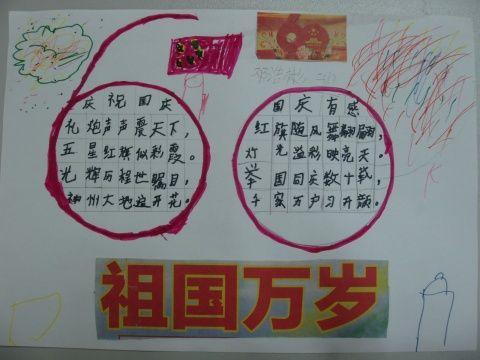 庆祝国庆
礼炮声声震天下，
五星红旗似彩霞。
光辉历程世瞩目，
神州大地遍开花。
国庆有感
红旗随风舞翩翩，
灯光溢彩映亮天。
举国同庆数十载，
千家万户习开颜。
祖国万岁